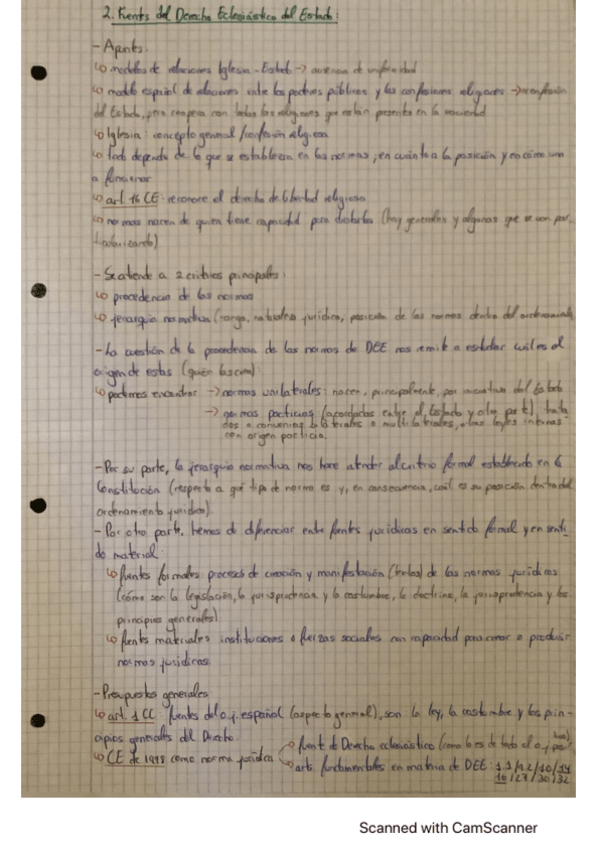 2. Fuentes del Derecho Eclesiástico del Estado:
- Apuntes:
↳ modelos de relaciones Iglesia-Estado → ausencia de uniformidad
↳ modelo español de relaciones entre los poderes públicos y las confesiones religiosas →
del Estado, pero coopera con todas las religiones que están presentes en la sociedad
↳ Iglesia: concepto general /confesión religiosa
↳ todo depende de lo que se establezca en las normas, en cuanto a la posición y en cómo van
a funcionar
↳ art. 16 CE: reconoce el derecho de libertad religiosa
↳ normas nacen de quien tiene capacidad para dictarlas (hay generales y algunas que se van par-
ticularizando)
- Se atiende a 2 criterios principales:
↳ procedencia de las normas
↳ jerarquía normativa (rango, naturaleza jurídica, posición de las normas dentro del ordenamiento
- La cuestión de la procedencia de las normas de DEE nos remite a estudiar cuál es el
origen de estas (quién las crea):
↳ podemos encontrar → normas unilaterales: nacen, principalmente, por iniciativa del Estado
→ normas pacticias (acordadas entre el Estado y otra parte), trata-
dos o convenios bilaterales o multilaterales, leyes internas
con origen pacticio.
- Por su parte, la jerarquía normativa nos hace atender al criterio formal establecido en la
Constitución (respecto a qué tipo de norma es y, en consecuencia, cuál es su posición dentro del
ordenamiento jurídico).
- Por otro parte, hemos de diferenciar entre fuentes jurídicas en sentido formal y en senti-
do material:
↳ fuentes formales: procesos de creación y manifestación (textos) de las normas jurídicas
(cómo son la legislación, la jurisprudencia y la costumbre, la doctrina, la jurisprudencia y los
principios generales)
↳ fuentes materiales: instituciones o fuerzas sociales con capacidad para crear o producir
normas jurídicas.
- Presupuestos generales
↳ art. 1 CC: fuentes del o.j. español (aspecto general), son la ley, la costumbre y los prin-
cipios generales del Derecho.
↳ CE de 1978 como norma jurídica → fuente de Derecho eclesiástico (como lo es de todo el o.j.
→ arts. fundamentales en materia de DEE: 1.1/9.2/10/14
16/27/30/32
Scanned with CamScanner